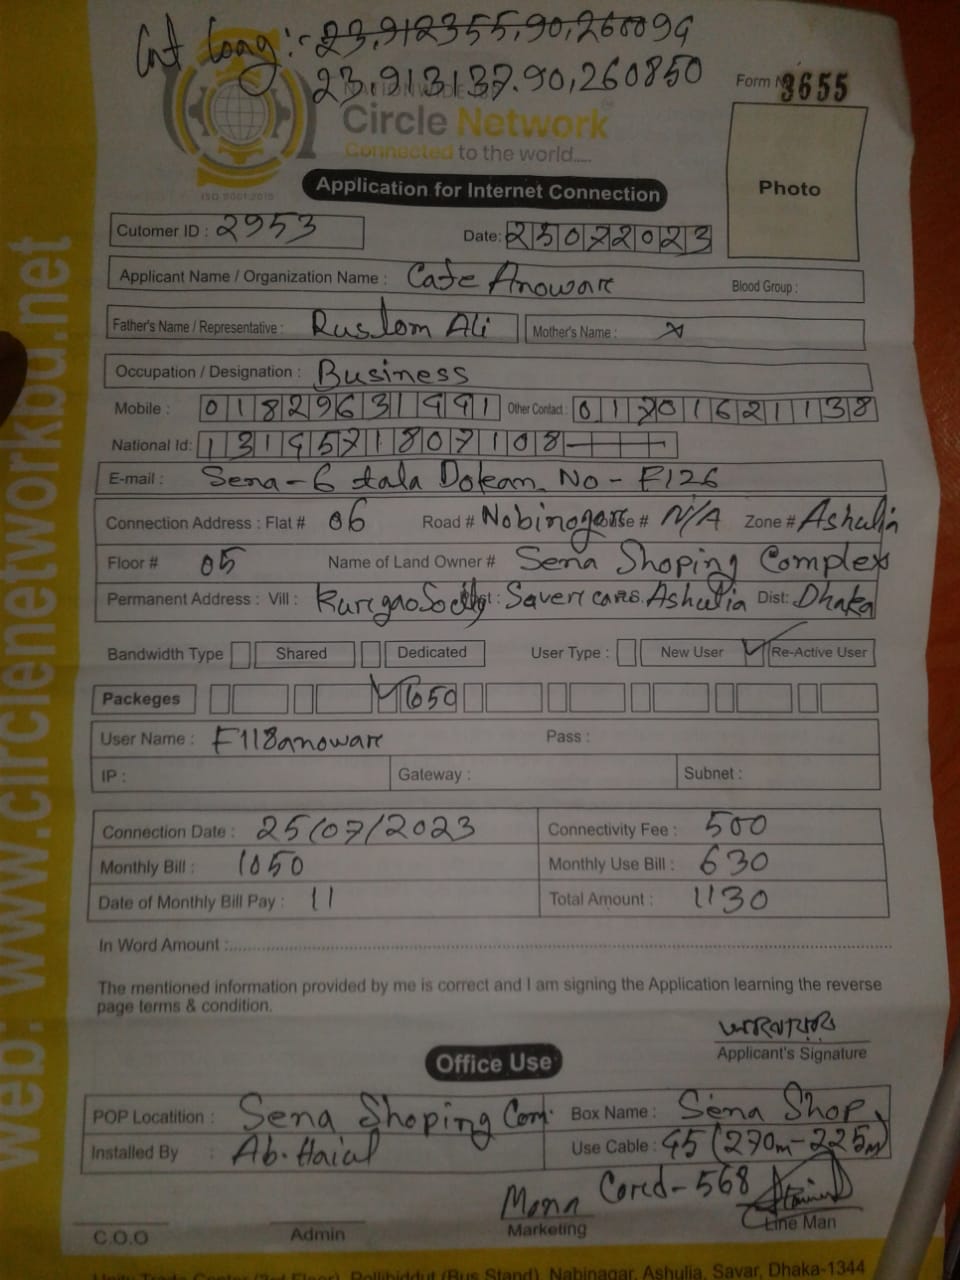 Lat Long:- 23,912355,90,260094
23,913137.90,260850
Form No 3655
NATIONWIDE ISP
Circle Network
Connected to the world.....
ISO 9001:2015
Application for Internet Connection
Photo
Cutomer ID : 2953
Date: 23072023
Applicant Name / Organization Name : Cafe Anoware Blood Group :
Father's Name / Representative : Rustom Ali Mother's Name : x
Occupation / Designation : Business
Mobile : 01829631991 Other Contact : 01701621138
National Id: 1319571807108
E-mail : Sena-6 tala Dokan No - F126
Connection Address : Flat # 06 Road # Nobinogor House # N/A Zone # Ashulia
Floor # 05 Name of Land Owner # Sena Shoping Complex
Permanent Address : Vill : Ashulia Dist: Dhaka
Bandwidth Type Shared Dedicated User Type : New User Re-Active User
Packeges 1050
User Name : F118anoware Pass :
IP : Gateway : Subnet :
Connection Date : 25/07/2023 Connectivity Fee : 500
Monthly Bill : 1050 Monthly Use Bill : 630
Date of Monthly Bill Pay : 11 Total Amount : 1130
In Word Amount :
The mentioned information provided by me is correct and I am signing the Application learning the reverse
page terms & condition.
Applicant's Signature
Office Use
POP Locatition : Sena Shoping Com. Box Name : Sena Shop.
Installed By : Ab. Haial Use Cable : 45 (270m-225m)
Cored-568
C.O.O Admin Marketing Line Man
Unity Trade Center (3rd Floor), Pollibiddut (Bus Stand), Nabinagar, Ashulia, Savar, Dhaka-1344
web: www.circlenetworkbd.net